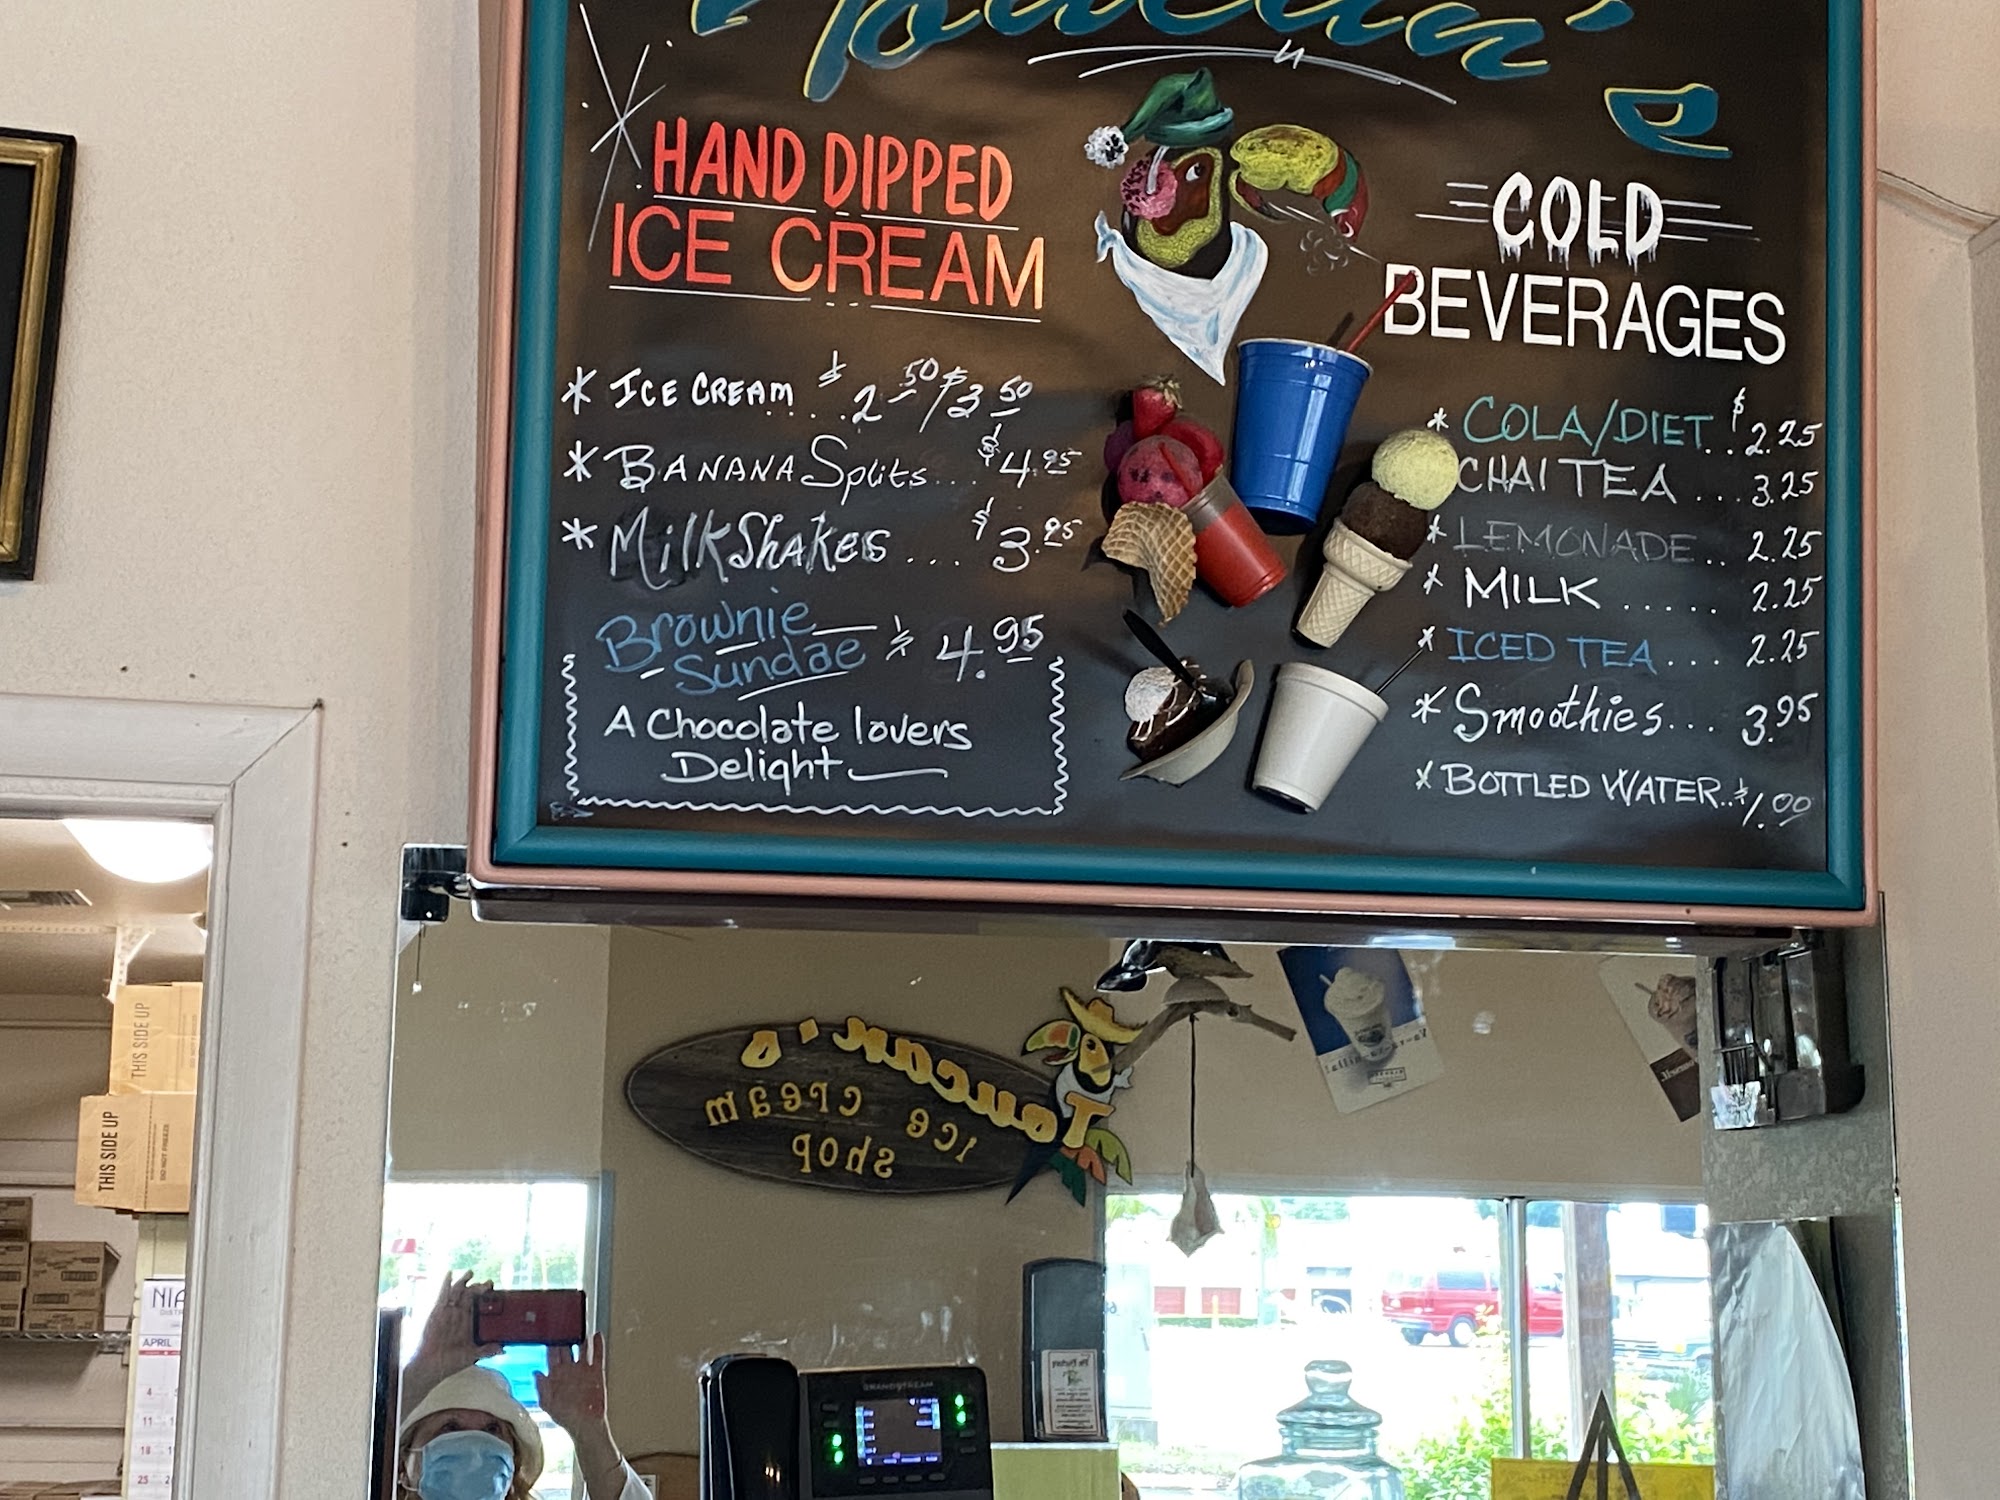 HAND DIPPED
ICE CREAM
* ICE CREAM .... $2.50/$3.50
* BANANA Splits... $4.95
* MilkShakes... $3.95
Brownie
Sundae $4.95
A Chocolate lovers
Delight
COLD
BEVERAGES
* COLA/DIET.. $2.25
CHAI TEA ... 3.25
* LEMONADE.. 2.25
* MILK ..... 2.25
* ICED TEA... 2.25
* Smoothies... 3.95
* BOTTLED WATER..$1.00
Toucan's
ice cream
shop
THIS SIDE UP
THIS SIDE UP
DO NOT FREEZE
APRIL
4
11
18
25
GRANDSTREAM